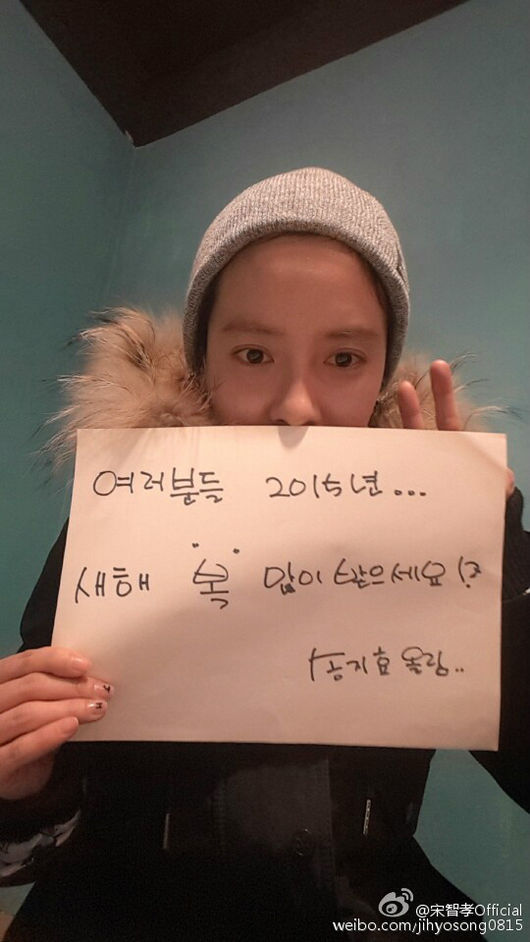 여러분들 2015년...
새해 복 많이 받으세요!?
송지효 올림..
@宋智孝Official
weibo.com/jihyosong0815